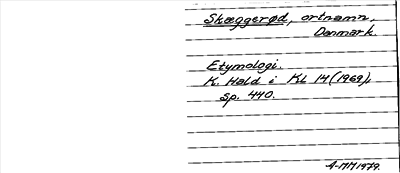 Skæggerød, ortnamn,
Danmark.
Etymologi.
K. Hald i KL 14 (1969),
sp. 440.
A-MM 1979.